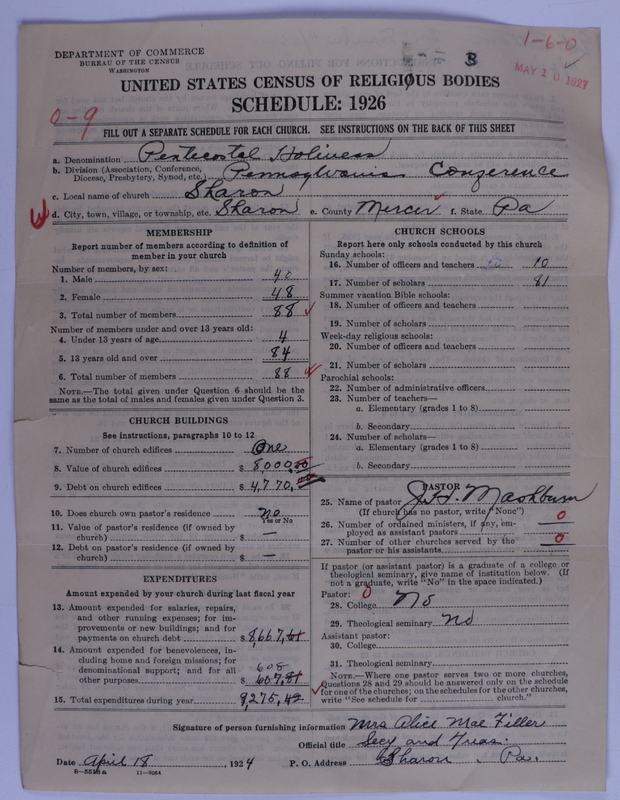 1-6-0
B
MAY 10 1927
DEPARTMENT OF COMMERCE
BUREAU OF THE CENSUS
WASHINGTON
UNITED STATES CENSUS OF RELIGIOUS BODIES
SCHEDULE: 1926
0-9
FILL OUT A SEPARATE SCHEDULE FOR EACH CHURCH. SEE INSTRUCTIONS ON THE BACK OF THIS SHEET
a. Denomination Pentecostal Holiness
b. Division (Association, Conference, Diocese, Presbytery, Synod, etc.) Pennsylvania Conference
c. Local name of church Sharon
d. City, town, village, or township, etc. Sharon e. County Mercer f. State Pa
MEMBERSHIP
Report number of members according to definition of
member in your church
Number of members, by sex:
1. Male 40
2. Female 48
3. Total number of members 88
Number of members under and over 13 years old:
4. Under 13 years of age 4
5. 13 years old and over 84
6. Total number of members 88
NOTE.—The total given under Question 6 should be the
same as the total of males and females given under Question 3.
CHURCH BUILDINGS
See instructions, paragraphs 10 to 12
7. Number of church edifices One
8. Value of church edifices $ 8,000.00
9. Debt on church edifices $ 4,770.
10. Does church own pastor's residence no
Yes or No
11. Value of pastor's residence (if owned by
church) $ —
12. Debt on pastor's residence (if owned by
church) $ —
EXPENDITURES
Amount expended by your church during last fiscal year
13. Amount expended for salaries, repairs,
and other running expenses; for im-
provements or new buildings; and for
payments on church debt $ 8,667.61
14. Amount expended for benevolences, in-
cluding home and foreign missions; for
denominational support; and for all 608
other purposes $ 607.81
15. Total expenditures during year 9,275.42
CHURCH SCHOOLS
Report here only schools conducted by this church
Sunday schools:
16. Number of officers and teachers 10
17. Number of scholars 81
Summer vacation Bible schools:
18. Number of officers and teachers
19. Number of scholars
Week-day religious schools:
20. Number of officers and teachers
21. Number of scholars
Parochial schools:
22. Number of administrative officers
23. Number of teachers—
a. Elementary (grades 1 to 8)
b. Secondary
24. Number of scholars—
a. Elementary (grades 1 to 8)
b. Secondary
PASTOR
25. Name of pastor Mashburn
(If church has no pastor, write "None")
26. Number of ordained ministers, if any, em-
ployed as assistant pastors 0
27. Number of other churches served by the
pastor or his assistants 0
If pastor (or assistant pastor) is a graduate of a college or
theological seminary, give name of institution below. (If
not a graduate, write "No" in the space indicated.)
Pastor: 0
28. College No
29. Theological seminary no
Assistant pastor:
30. College
31. Theological seminary
NOTE.—Where one pastor serves two or more churches,
Questions 28 and 29 should be answered only on the schedule
for one of the churches; on the schedules for the other churches,
write "See schedule for church."
Signature of person furnishing information Mrs Alice Mae Filler
Official title Secy and Treas.
Date April 18, 1924 P. O. Address Sharon, Pa.
8-5518a 11-9064